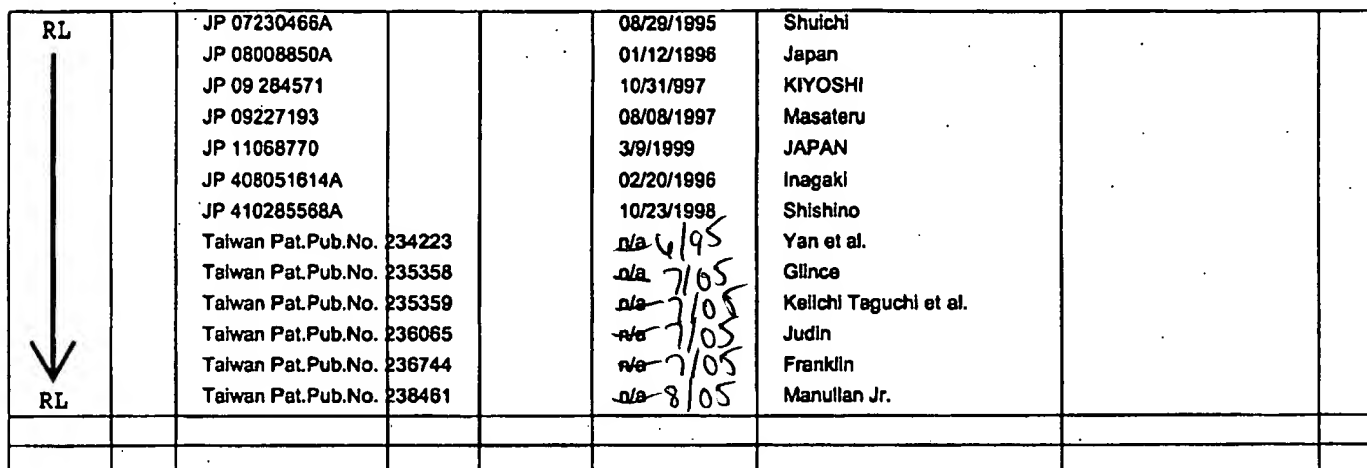 RL JP 07230466A 08/29/1995 Shuichi
JP 08008850A 01/12/1996 Japan
JP 09 284571 10/31/997 KIYOSHI
JP 09227193 08/08/1997 Masateru
JP 11068770 3/9/1999 JAPAN
JP 408051614A 02/20/1996 Inagaki
JP 410285568A 10/23/1998 Shishino
Taiwan Pat.Pub.No. 234223 n/a 6/95 Yan et al.
Taiwan Pat.Pub.No. 235358 n/a 7/05 Glince
Taiwan Pat.Pub.No. 235359 n/a 7/05 Keiichi Taguchi et al.
Taiwan Pat.Pub.No. 236065 n/a 7/05 Judin
Taiwan Pat.Pub.No. 236744 n/a 7/05 Franklin
RL Taiwan Pat.Pub.No. 238461 n/a 8/05 Manullan Jr.